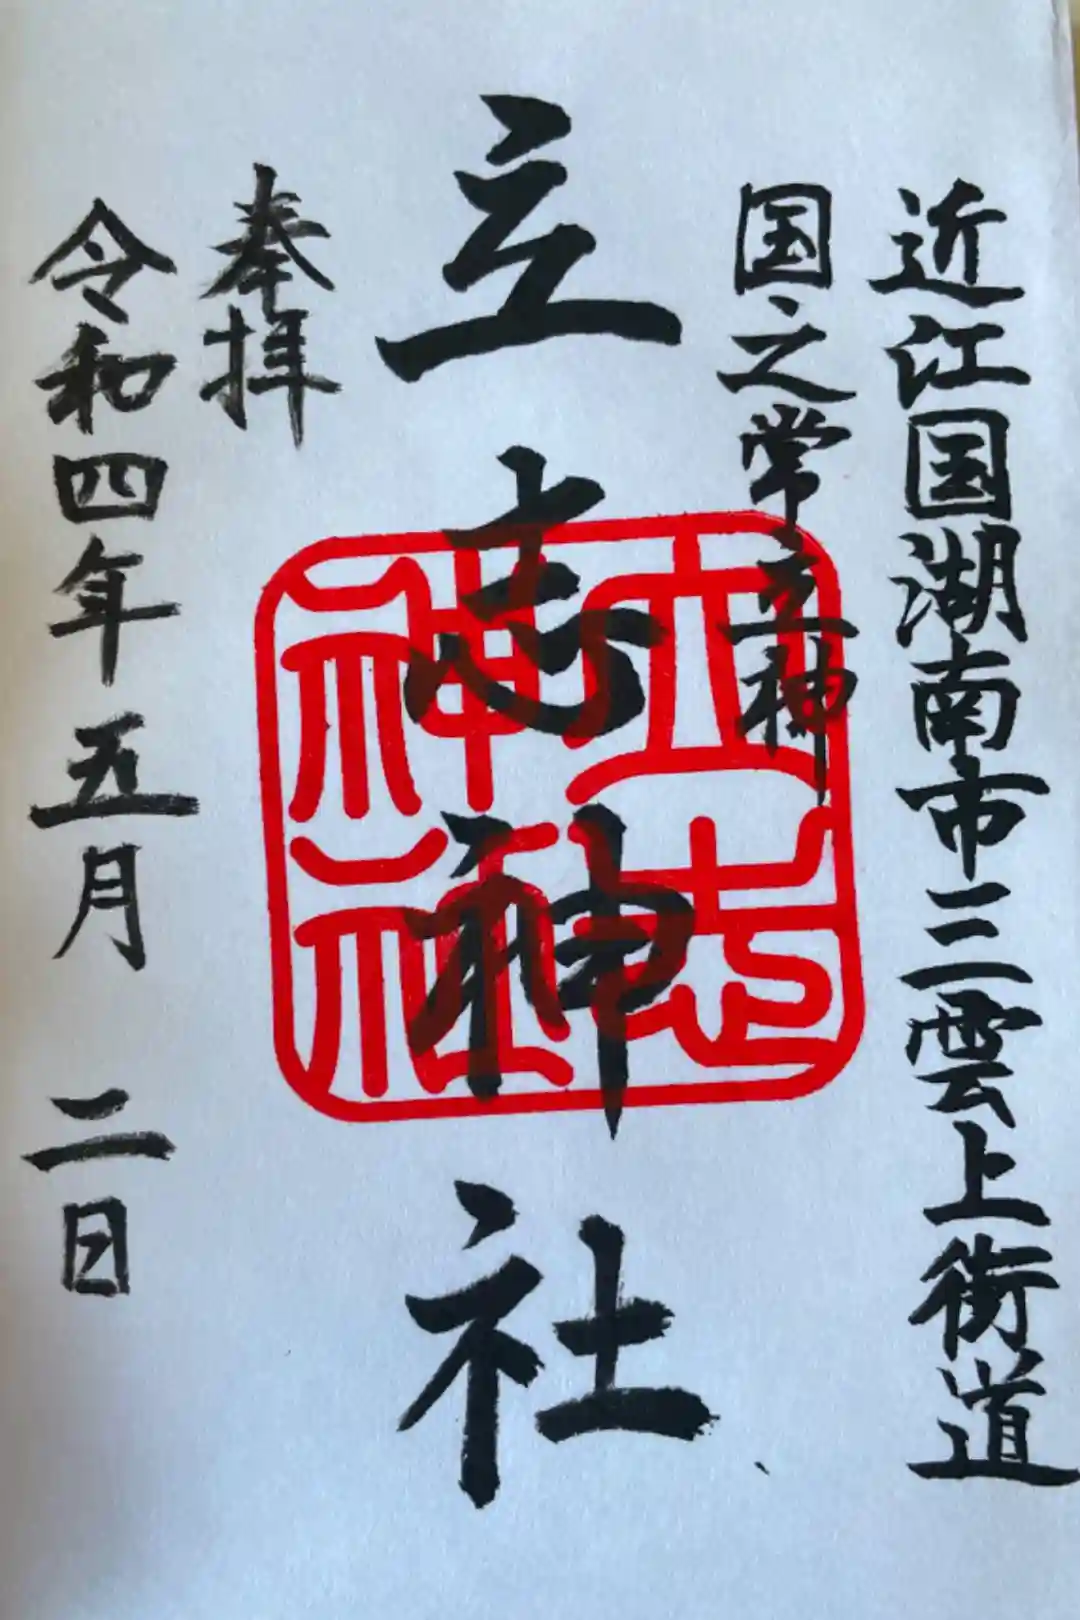 近江国湖南市三雲上街道
国之常立神
立志神社
奉拝
令和四年五月二日
立志
神社